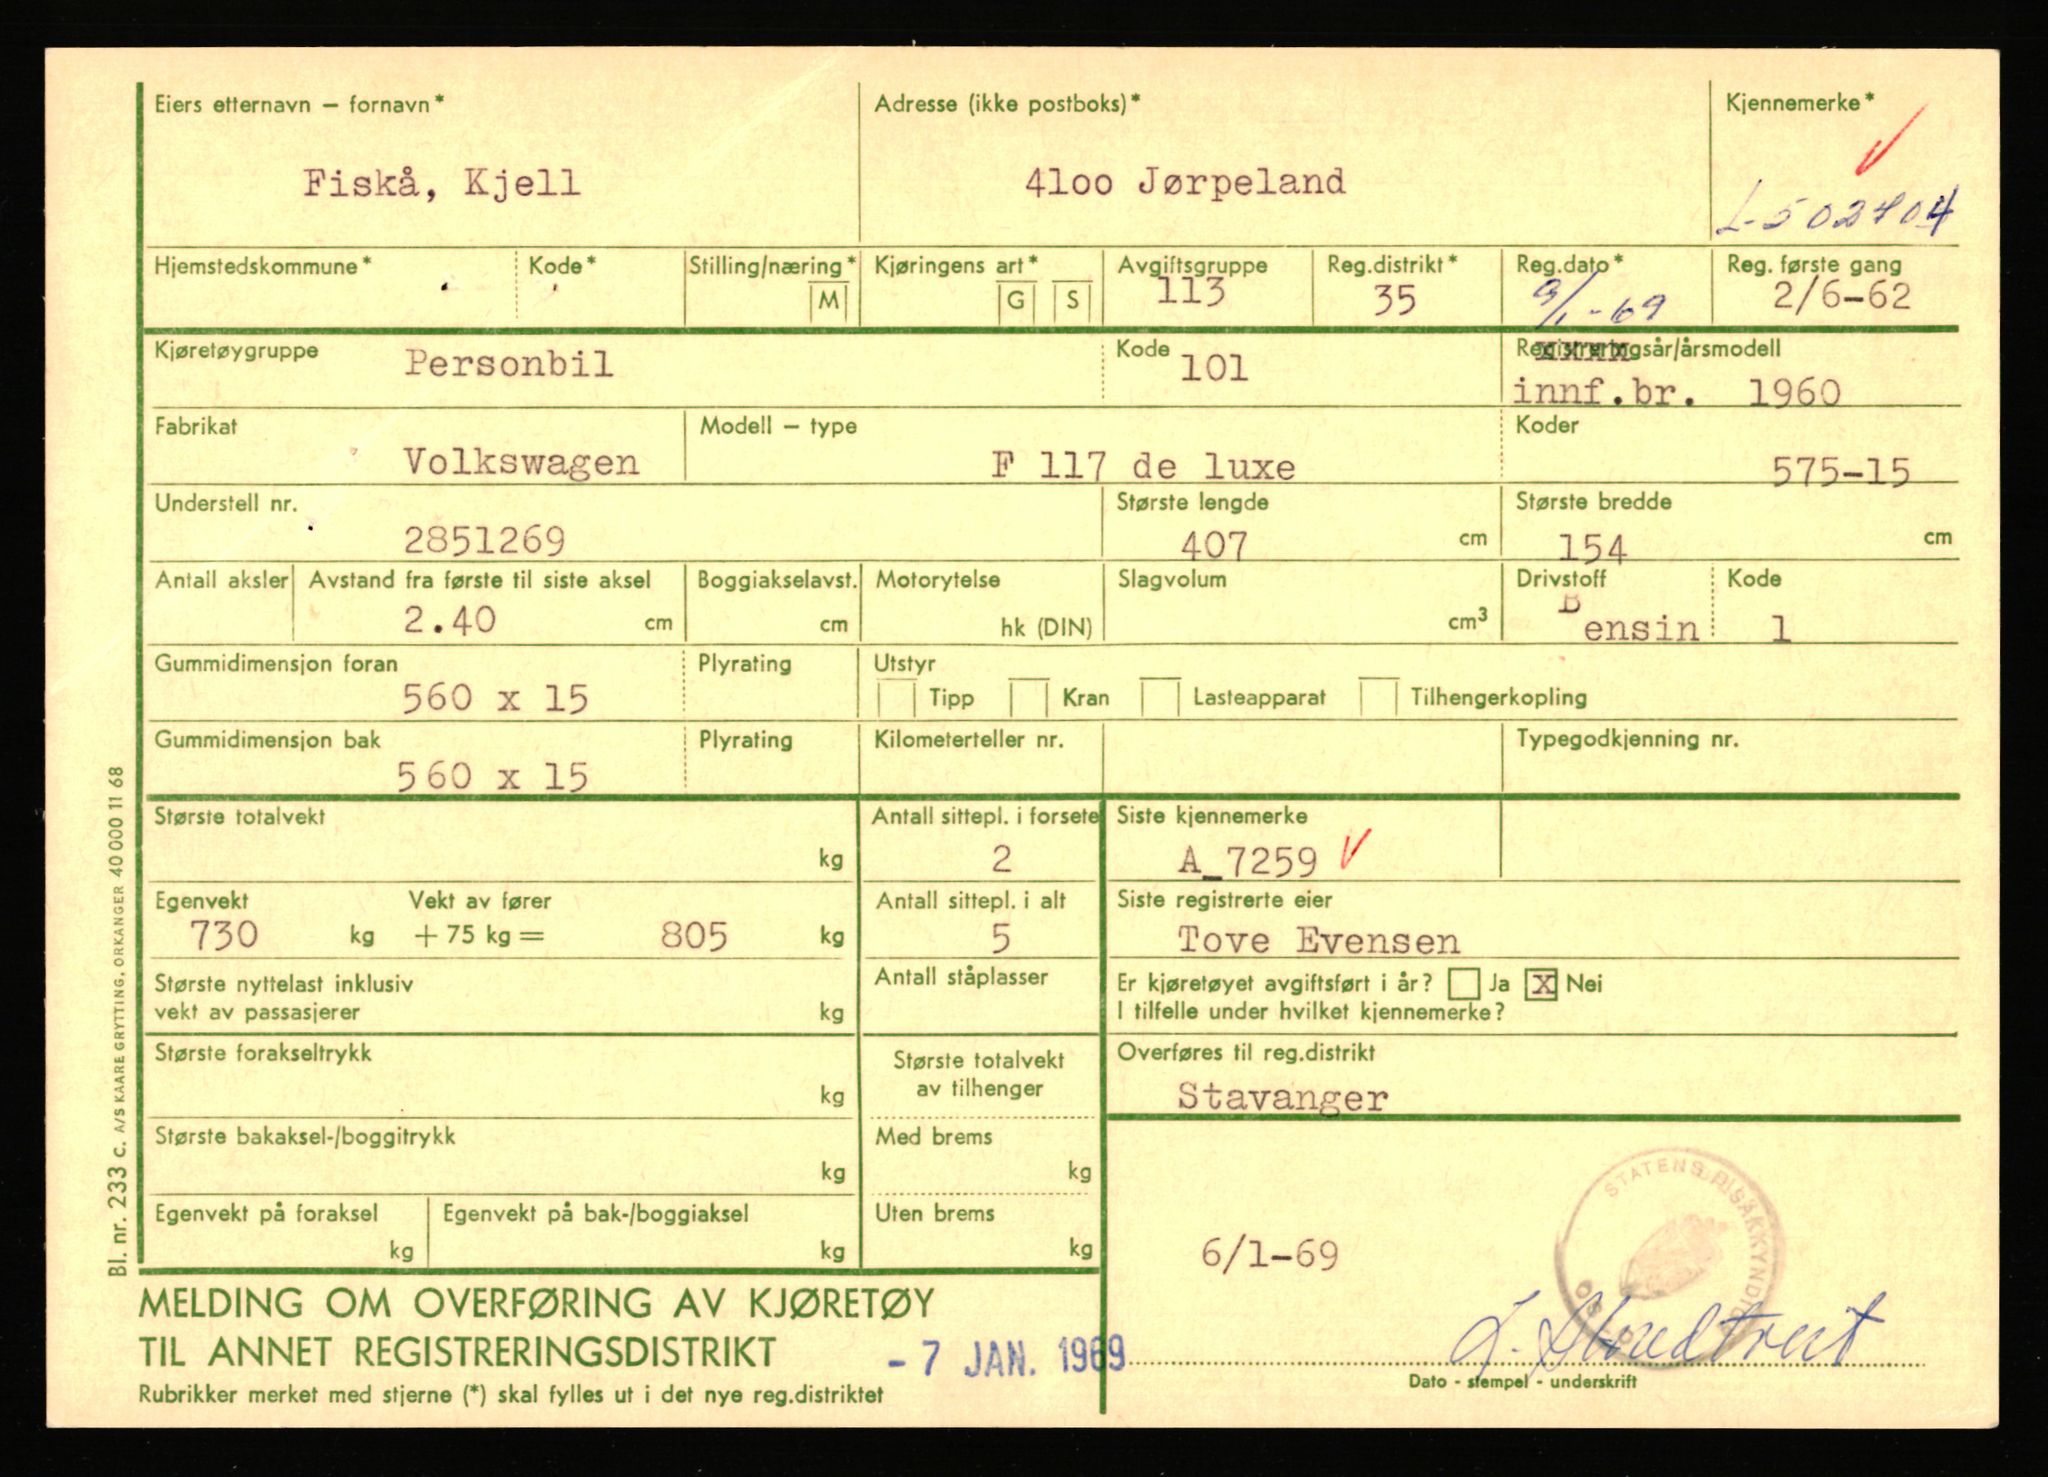 Eiers etternavn — fornavn*
Adresse (ikke postboks)*
Kjennemerke*
Fiskå, Kjell
4100 Jørpeland
Hjemstedskommune*
Kode*
Stilling/næring*
M
Kjøringens art*
G
S
Avgiftsgruppe
113
Reg.distrikt*
35
Reg.dato*
9/1-69
Reg. første gang
2/6-62
Kjøretøygruppe
Personbil
Kode
101
Registreringsår/årsmodell
innf.br. 1960
Fabrikat
Volkswagen
Modell — type
F 117 de luxe
Koder
575-15
Understell nr.
2851269
Største lengde
407 cm
Største bredde
154 cm
Antall aksler
Avstand fra første til siste aksel
2.40 cm
Boggiakselavst.
cm
Motorytelse
hk (DIN)
Slagvolum
cm³
Drivstoff
Bensin
Kode
1
Gummidimensjon foran
560 x 15
Plyrating
Utstyr
Tipp
Kran
Lasteapparat
Tilhengerkopling
Gummidimensjon bak
560 x 15
Plyrating
Kilometerteller nr.
Typegodkjenning nr.
Største totalvekt
kg
Antall sittepl. i forsete
2
Siste kjennemerke
A_7259
Egenvekt
730 kg
Vekt av fører
+ 75 kg = 805 kg
Antall sittepl. i alt
5
Siste registrerte eier
Tove Evensen
Største nyttelast inklusiv
vekt av passasjerer
kg
Antall ståplasser
Er kjøretøyet avgiftsført i år? Ja X Nei
I tilfelle under hvilket kjennemerke?
Største forakseltrykk
kg
Største totalvekt
av tilhenger
Overføres til reg.distrikt
Stavanger
Største bakaksel-/boggitrykk
kg
Med brems
kg
Egenvekt på foraksel
kg
Egenvekt på bak-/boggiaksel
kg
Uten brems
kg
6/1-69
MELDING OM OVERFØRING AV KJØRETØY
TIL ANNET REGISTRERINGSDISTRIKT
- 7 JAN. 1969
Dato - stempel - underskrift
Rubrikker merket med stjerne (*) skal fylles ut i det nye reg.distriktet
Bl. nr. 233 c. A/S KAARE GRYTTING, ORKANGER 40 000 11 68